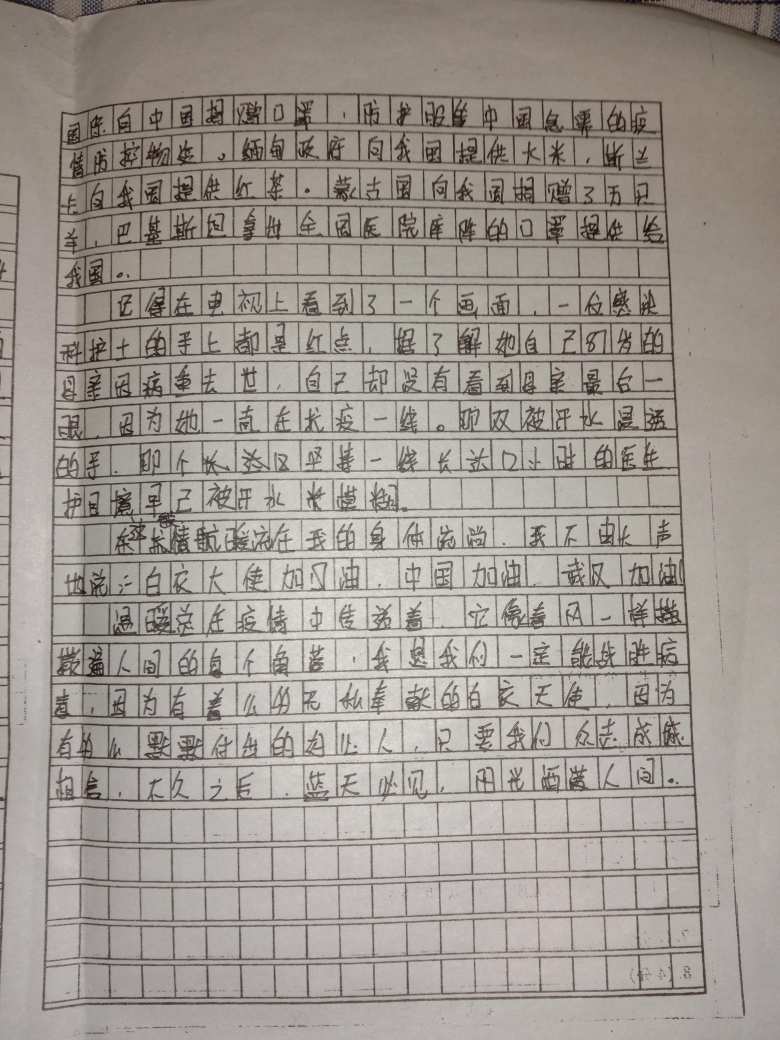 国际向中国捐赠口罩，防护服等中国急需的疫
情防控物资。缅甸政府向我国提供大米，斯兰
卡向我国提供红茶。蒙古国向我国捐赠了万只
羊，巴基斯坦拿出全国医院库阵的口罩提供给
我国。
记得在电视上看到了一个画面，一位感染
科护士的手上都是红点，据了解她自己87岁的
母亲因病重去世，自己却没有看到母亲最后一
眼，因为她一直在抗疫一线。那双被汗水浸透
的手，那个长达坚持一线长达小时的医生
护目境早已被汗水模糊。
在这情暖流在我的身体流淌，我不由大声
地说：白衣天使加油，中国加油，武汉加油
温暖总在疫情中传递着，它像春风一样
撒人间的每个角落，我想我们一定能战胜病
毒，因为有着么多无私奉献的白衣天使，因为
有多么默默付出的人，只要我们众志成城
相信，不久之后，蓝天必见，阳光洒满人间。
8.(4分)